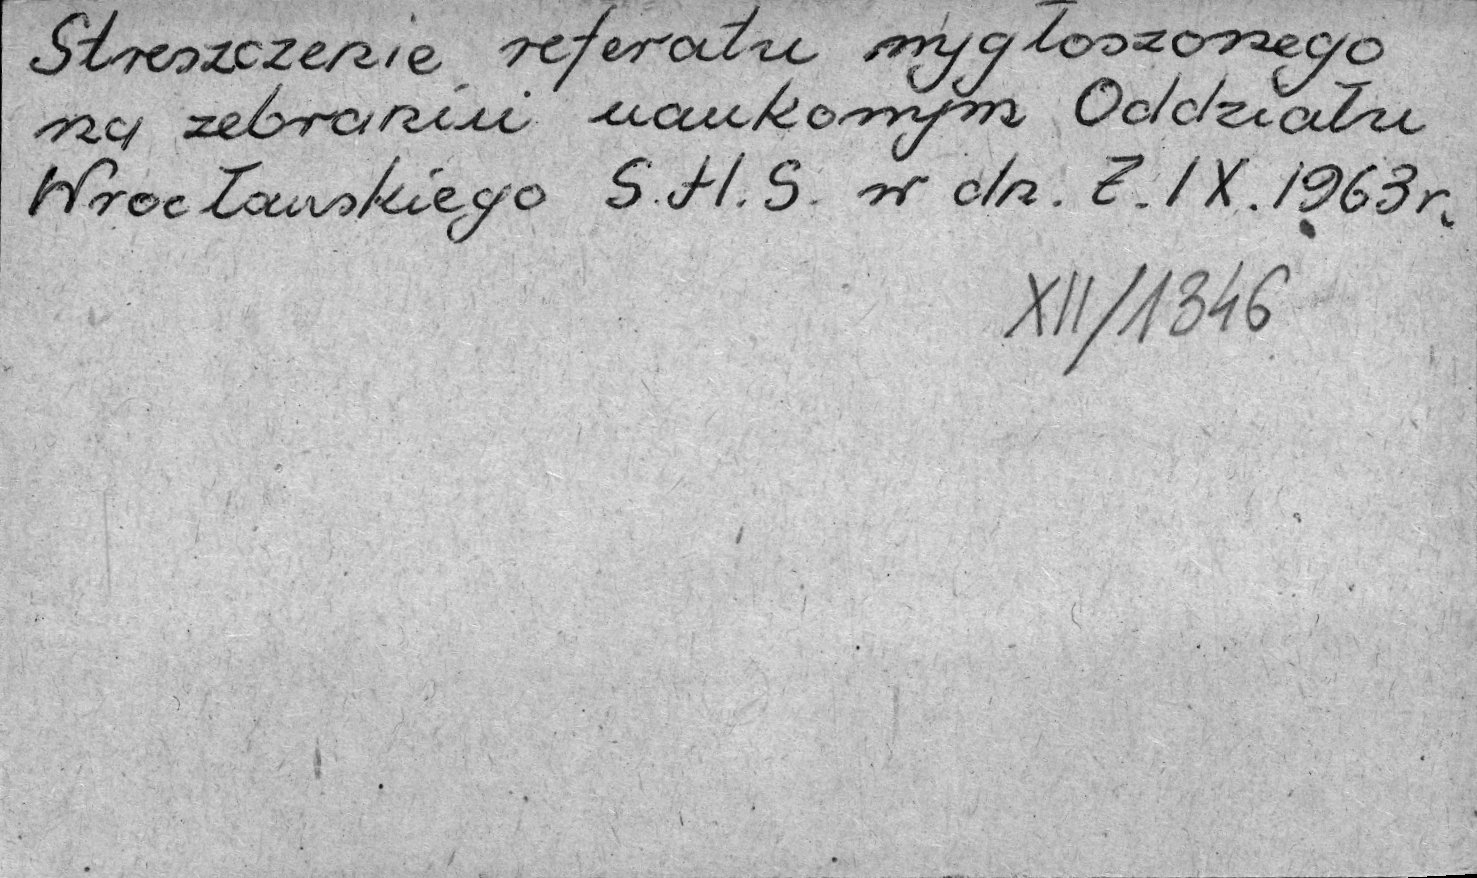 Streszczenie referatu wygłoszonego
na zebraniu naukowym Oddziału
Wrocławskiego S.H.S. w dn. 7.IX.1963r.
XII/1346